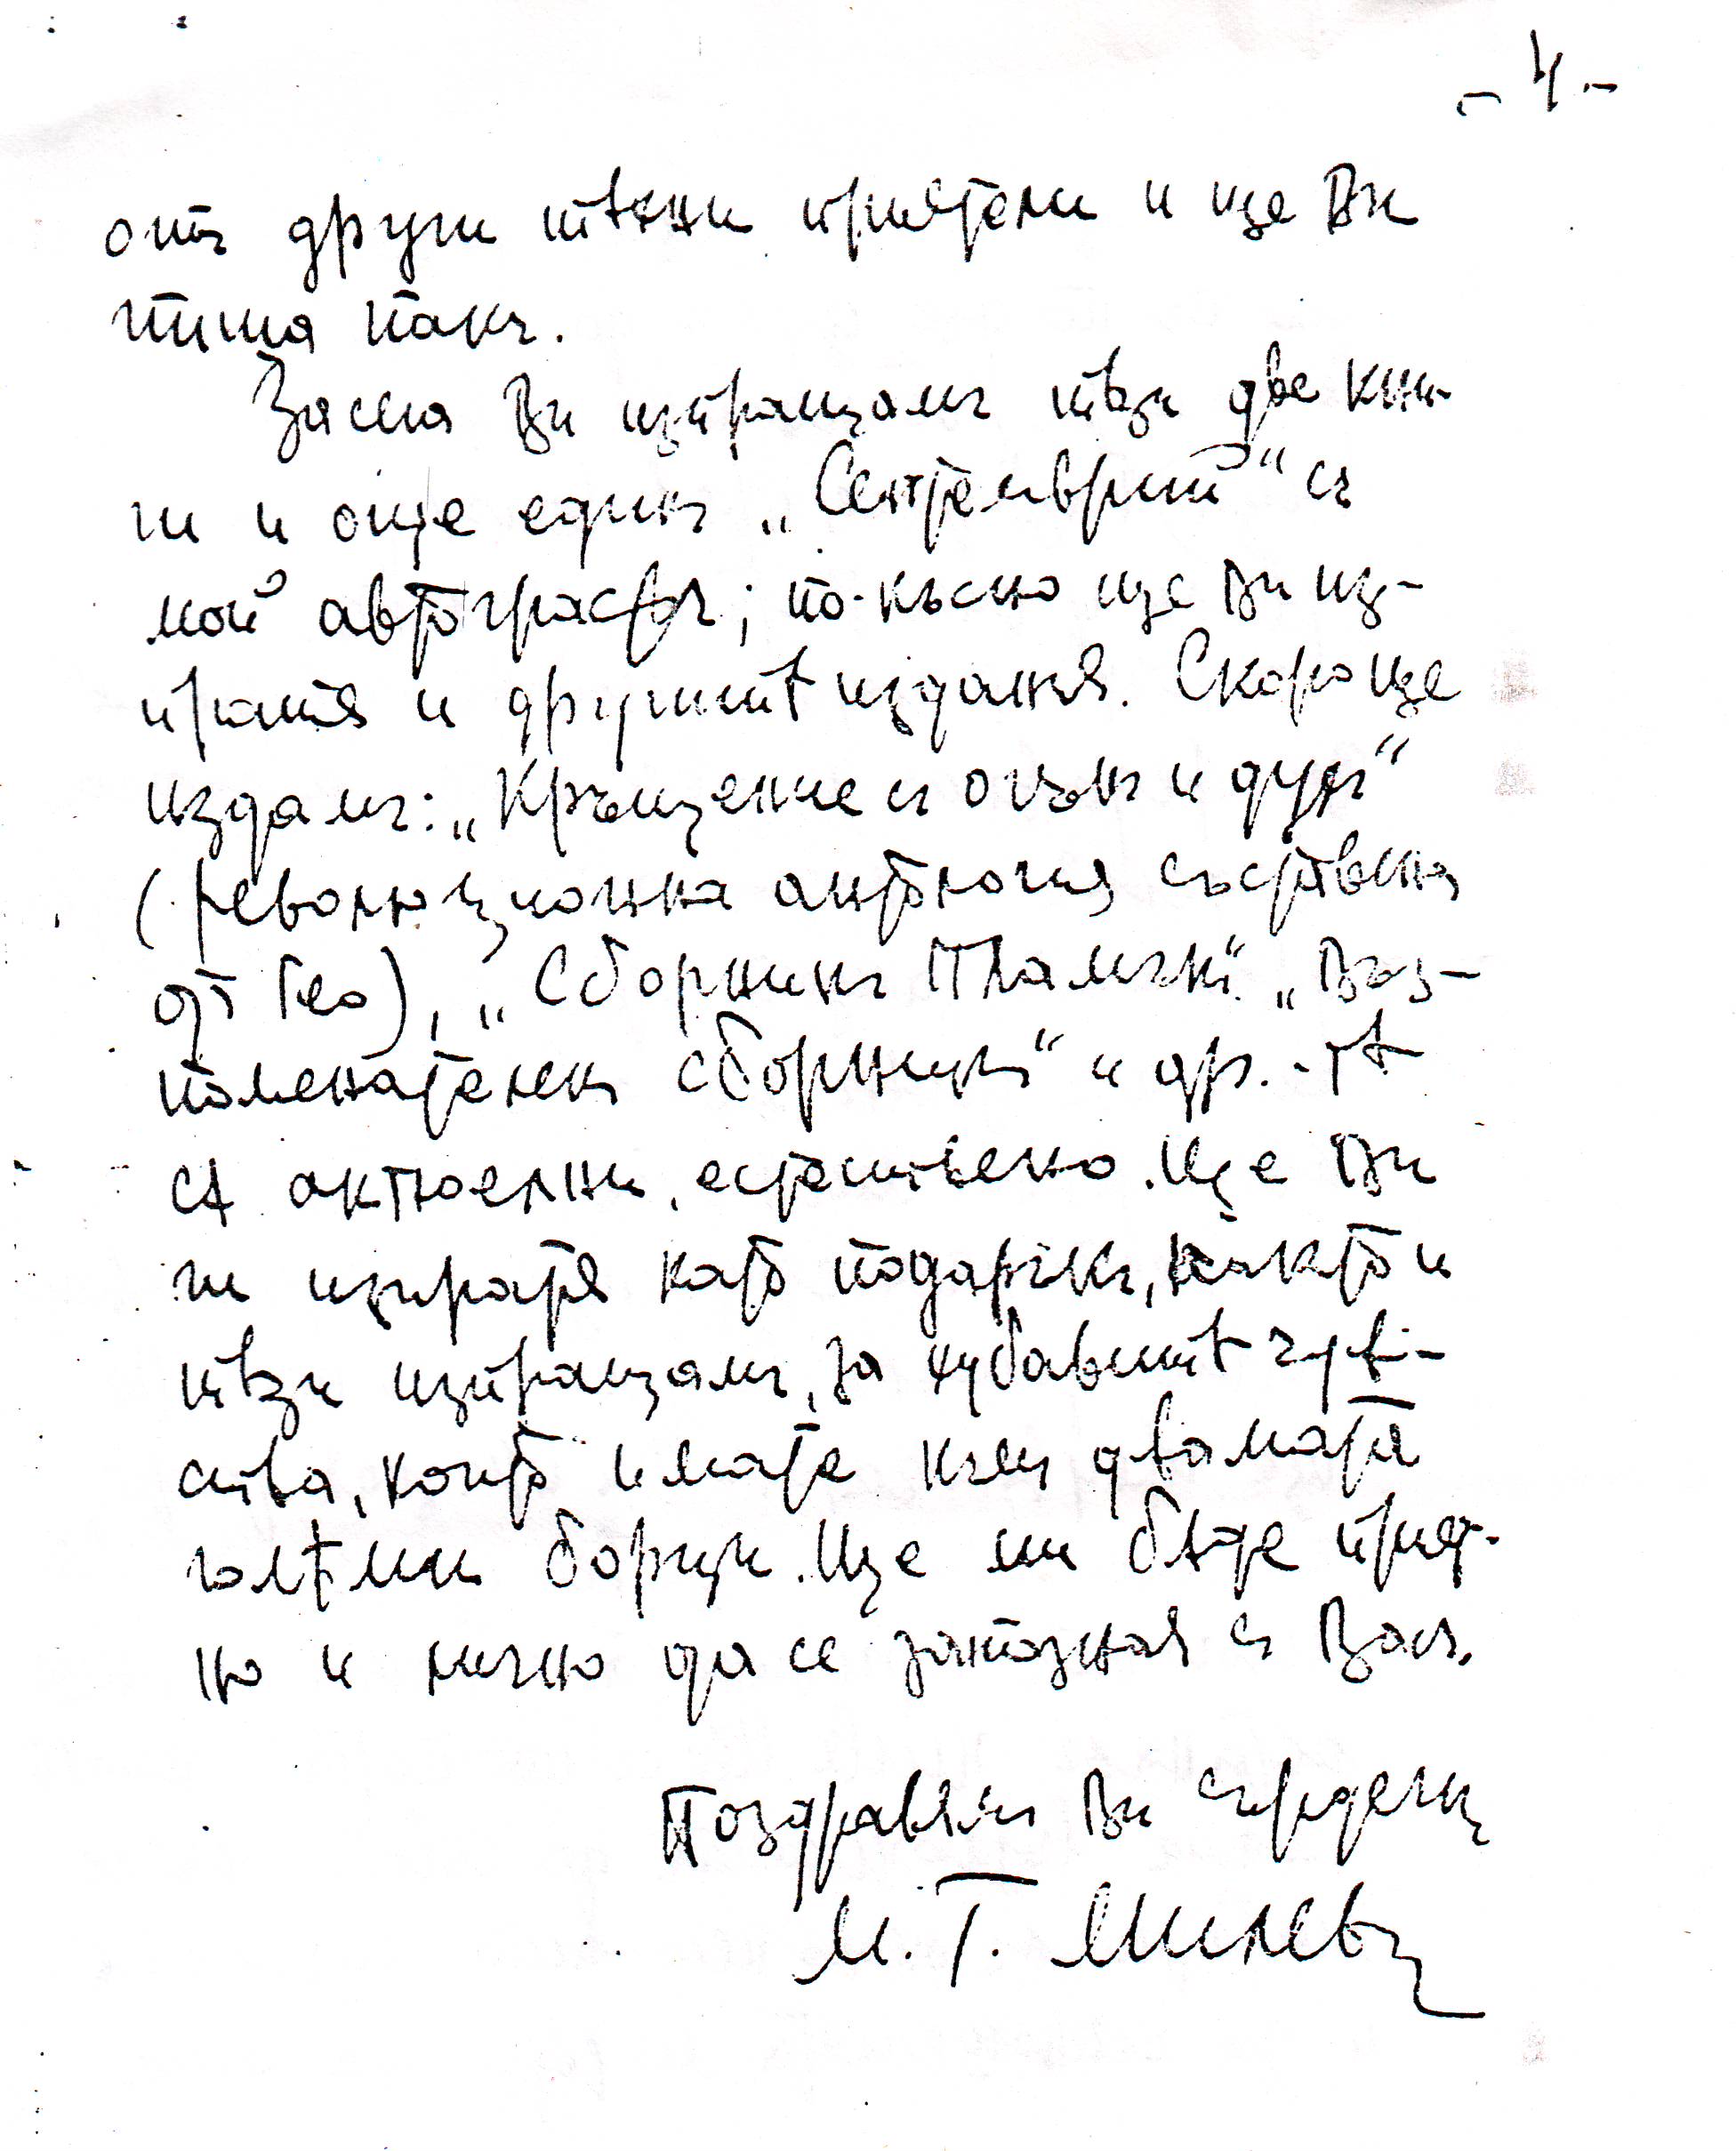 - 4 -
отъ други тѣхни приятели и ще Ви
пиша пакъ.
Засега Ви изпращамъ тѣзи две кни-
ги и още единъ „Септемврий“ съ
мой автографъ; по-късно ще Ви из-
пратя и другитѣ издания. Скоро ще
издамъ: „Кръщение съ огънь и духъ“
(революционна антология съставена
отъ Гео), „Сборникъ Пламъкъ“ „Въз-
поменателенъ сборникъ“ и др. - тѣ
сѫ актюелни, естествено. Ще Ви
ги изпратя като подаръкъ, както и
тѣзи изпращамъ, за хубавитѣ чув-
ства, които имате къмъ двамата
голѣми борци. Ще ми бѫде прият-
но и лично да се запозная съ Васъ.
Поздравявамъ Ви сърдечно
М. Г. Милевъ